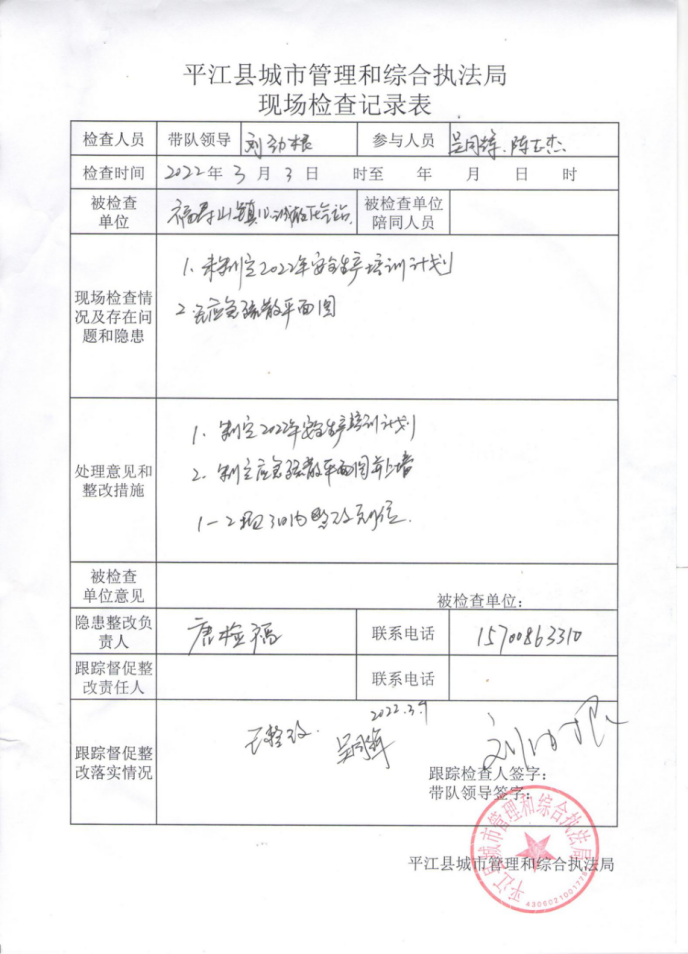 平江县城市管理和综合执法局
现场检查记录表
检查人员 带队领导 刘劲根 参与人员 吴同辉、陈正杰
检查时间 2022年3月3日 时至 年 月 日 时
被检查单位 福寿山镇 被检查单位陪同人员
现场检查情况及存在问题和隐患
1、未制定2022年安全生产培训计划
2 无应急疏散平面图
处理意见和整改措施
1、制定2022年安全生产培训计划
2、制定应急疏散平面图并上墙
1-2项3日内整改到位.
被检查单位意见
被检查单位：
隐患整改负责人 唐检福 联系电话 15700863310
跟踪督促整改责任人 联系电话
跟踪督促整改落实情况
2022.3.9
已整改. 吴同辉 刘劲根
跟踪检查人签字：
带队领导签字：
平江县城市管理和综合执法局
平江县城市管理和综合执法局